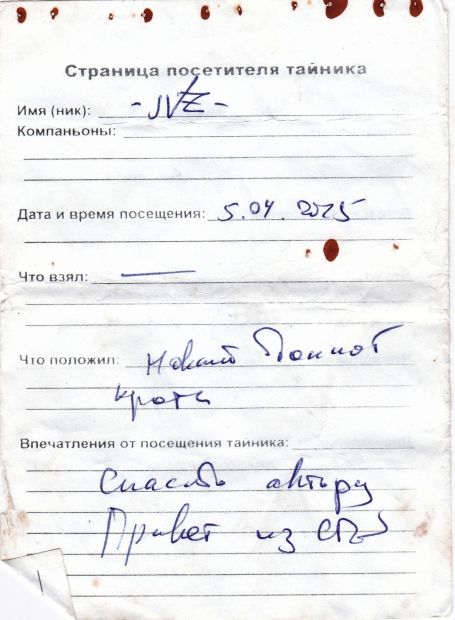 Страница посетителя тайника
Имя (ник): -NZ-
Компаньоны:
Дата и время посещения: 5.04.2015
Что взял: —
Что положил: Новый блокнот
Впечатления от посещения тайника:
Спасибо автору
Привет из СПб